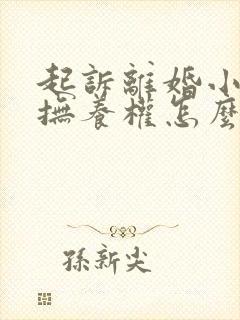 起訴離婚小
撫養權怎麼
孫新尖